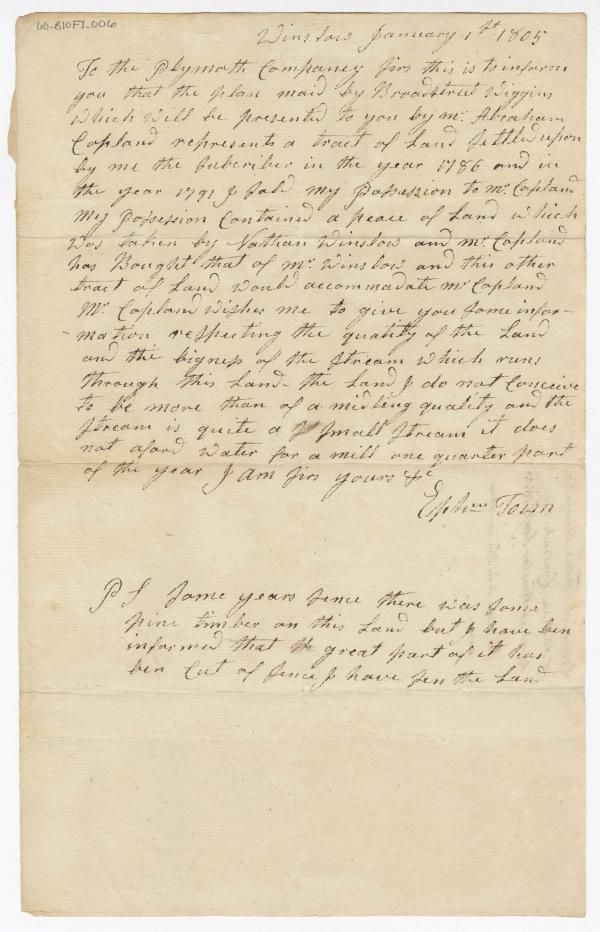 60-B10F7-006
Winslow January 1st 1805
To the Plymoth Companey Sirs this is to inform
you that the plan maid by Broadstreet Wiggins
Which will be presented to you by mr. Abraham
Copland represents a tract of Land Settled upon
by me the Subcriber in the year 1786 and in
the year 1791 I Sold my Possession to Mr. Copland
My Possession Contained a peace of Land which
was taken by Nathan Winslow and mr. Copland
has Bought that of Mr. Winslow and this other
tract of Land would accommadate Mr Copland
Mr. Copland wishes me to give you Some infor-
-mation respecting the quality of the Land
and the bigness of the Stream which runs
through this Land - the Land I do not Conceive
to be more than of a midling quality and the
Stream is quite a Small Stream it does
not aford water for a mill one quarter part
of the year I Am Sirs yours &c
Ephm Town
P S Some years Sence there was Some
pine timber on this Land but I have ben
informed that great part of it has
ben Cut of Sence I have Sen the Land